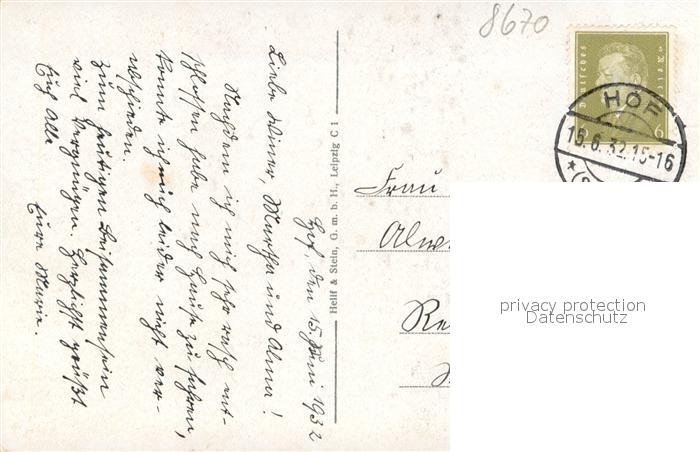 8670
Deutsches Reich
6
HOF
15.6.32.15-16
Hof, den 15. Juni 1932
Liebe Wiener, Martha und Alma!
Nachdem ich mich sehr rasch ent-
schlossen habe nach Hause zu fahren,
konnte ich mich leider nicht ver-
abschieden.
zum heutigen Beisammensein
viel Vergnügen. Herzlichst grüßt
Euch Alle
Eure Marie.
Helif & Stein, G. m. b. H., Leipzig C 1
Frau
privacy protection
Datenschutz